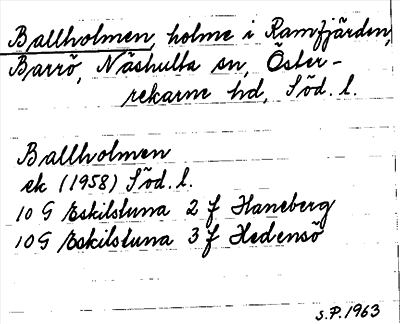 Ballholmen, holme i Ramfjärden,
Barrö, Näshulta sn, Öster-
rekarne hd, Söd. l.
Ballholmen
ek (1958) Söd. l.
10 G Eskilstuna 2 f Haneberg
10 G Eskilstuna 3 f Hedensö
S.P. 1963